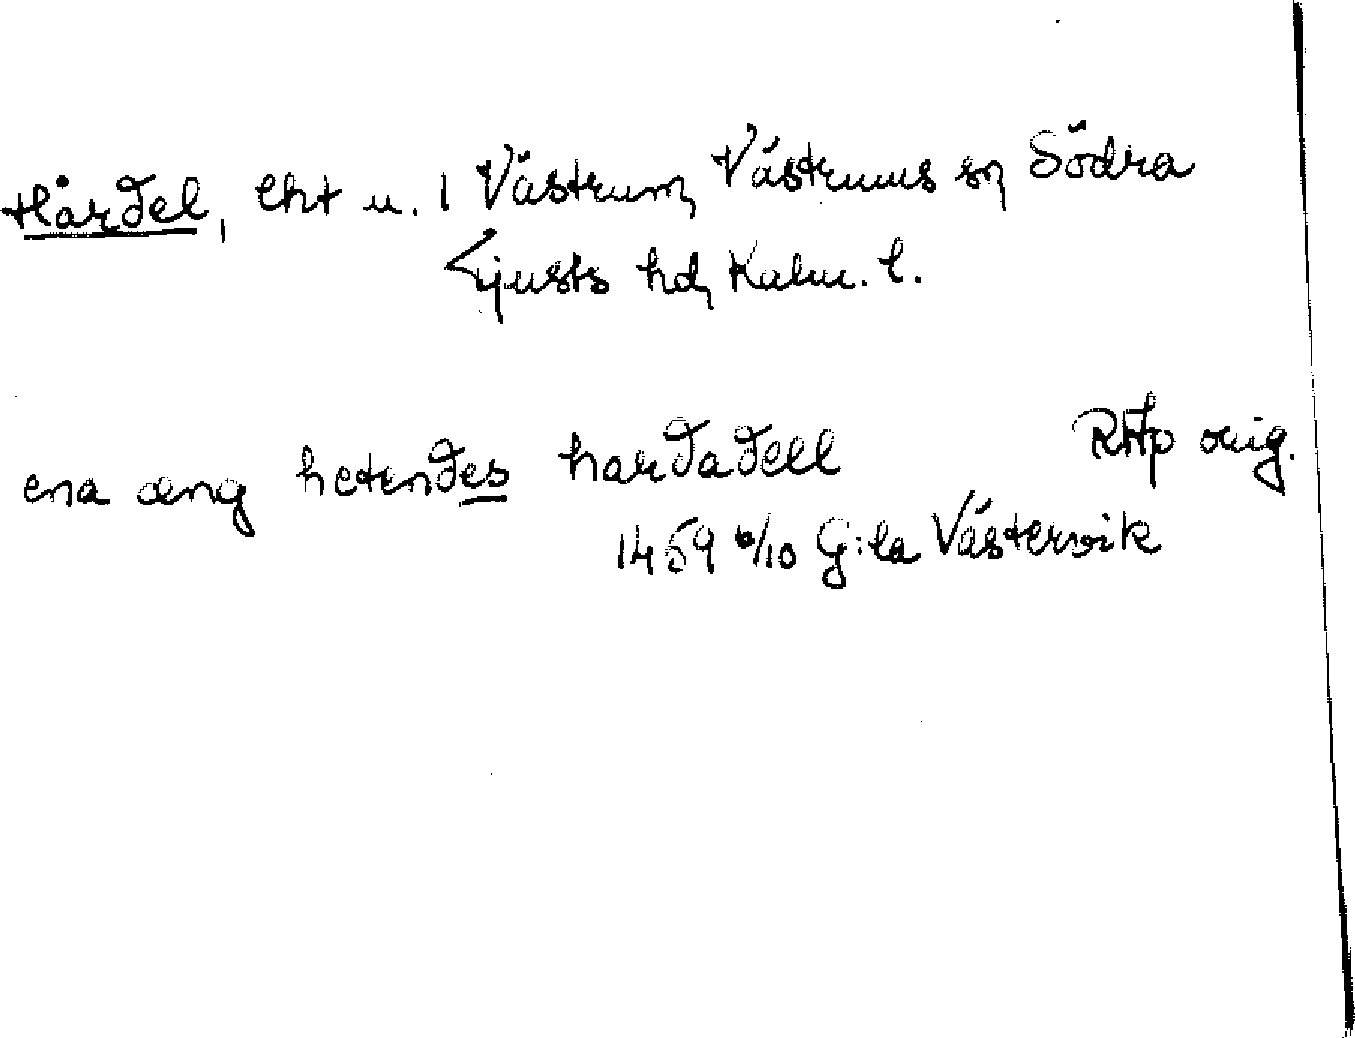 Hårdel, lht u. 1 Västrum, Västrums sn, Södra
Tjusts hd, Kalm. l.
ena æng hetendes hardadell RAp orig.
1459 6/10 G:la Västervik